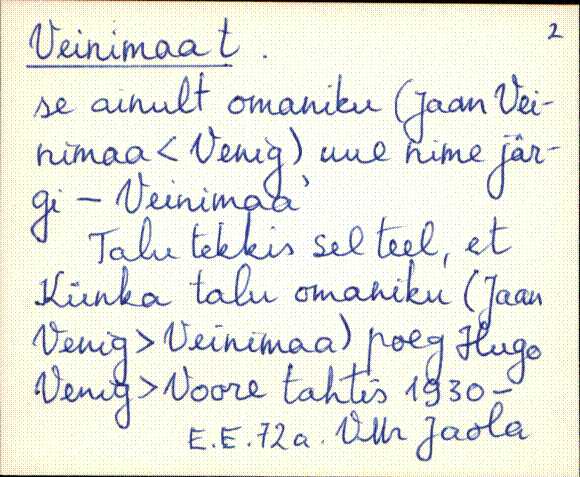 2
Veinimaa t.
se ainult omaniku (Jaan Vei-
nimaa < Venig) uue nime jär-
gi – Veinimaa'
Talu tekkis sel teel, et
Künka talu omaniku (Jaan
Venig > Veinimaa) poeg Hugo
Venig > Voore tahtis 1930-
E.E. 72a. VMr Jaola